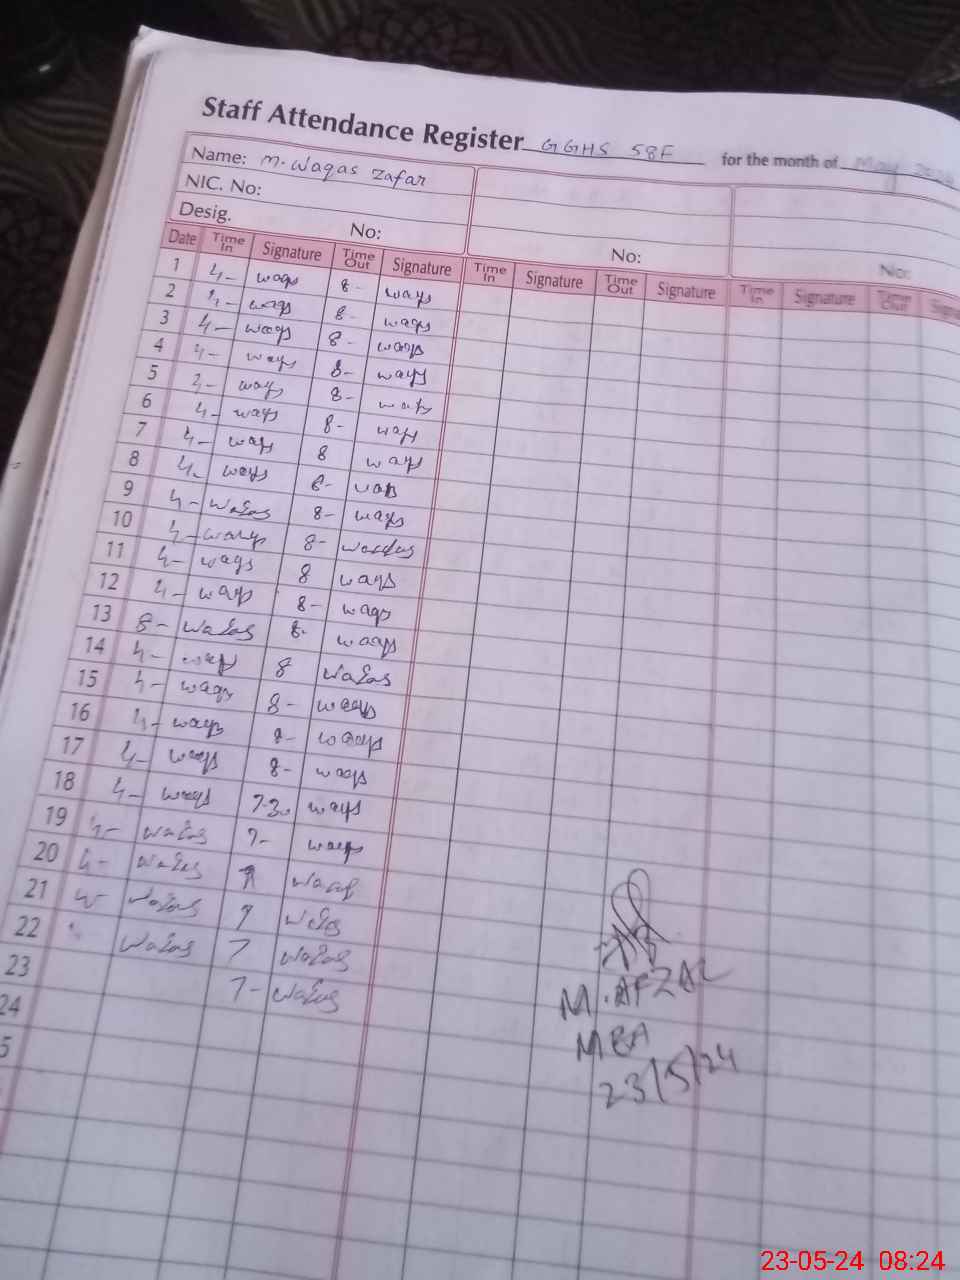 Staff Attendance Register GGHS 58F for the month of May
Name: M. Waqas Zafar
NIC. No:
Desig. No: No: No:
Date Time In Signature Time Out Signature Time In Signature Time Out Signature Time In Signature Time Out
1 4- waqs 8- waqs
2 4- waqs 8- waqs
3 4- waqs 8- waqs
4 4- waqs 8- waqs
5 4- waqs 8-
6 4- waqs 8- waqs
7 4- waqs 8 waqs
8 4- waqs 8-
9 4- Waqas 8- waqs
10 4- 8-
11 4- waqs 8 waqs
12 4- waqs 8- waqs
13 8- Waqas 8- waqs
14 4- waqs 8 Waqas
15 4- waqs 8- waqs
16 4- waqs 8- waqs
17 4- waqs 8- waqs
18 4- waqs 7-30 waqs
19 4- Waqas 7- waqs
20 4- Waqas
21 Waqas 7 Waqas
22 Waqas 7 Waqas
23 7- Waqas
24
5
M. AFZAL
MEA
23/5/24
23-05-24 08:24